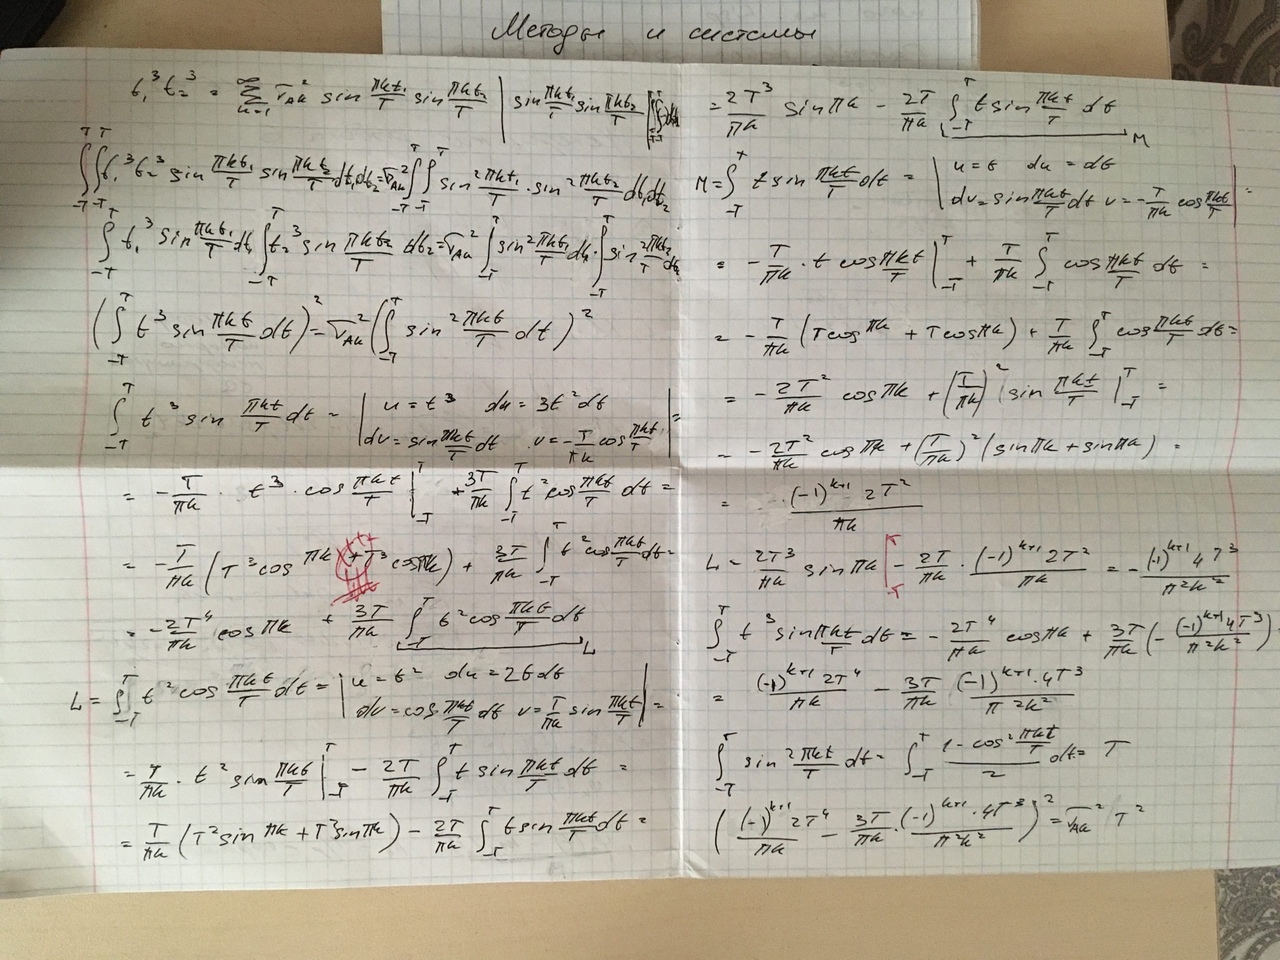 Методы и системы
t₁³t₂³ = ∑_{k=1}^{∞} σ_{Ak}² sin πkt₁/T sin πkt₂/T | sin πkt₁/T sin πkt₂/T
∫_{-T}^{T}∫_{-T}^{T} t₁³t₂³ sin πkt₁/T sin πkt₂/T dt₁dt₂ = σ_{Ak}² ∫_{-T}^{T}∫_{-T}^{T} sin² πkt₁/T · sin² πkt₂/T dt₁dt₂
∫_{-T}^{T} t₁³ sin πkt₁/T dt₁ ∫_{-T}^{T} t₂³ sin πkt₂/T dt₂ = σ_{Ak}² ∫_{-T}^{T} sin² πkt₁/T dt₁ · ∫_{-T}^{T} sin² πkt₂/T dt₂
(∫_{-T}^{T} t³ sin πkt/T dt)² = σ_{Ak}² (∫_{-T}^{T} sin² πkt/T dt)²
∫_{-T}^{T} t³ sin πkt/T dt = | u = t³ du = 3t²dt
dv = sin πkt/T dt v = -T/πk cos πkt/T | =
= -T/πk · t³ · cos πkt/T |_{-T}^{T} + 3T/πk ∫_{-T}^{T} t² cos πkt/T dt =
= -T/πk (T³ cos πk + T³ cos πk) + 3T/πk ∫_{-T}^{T} t² cos πkt/T dt =
= -2T⁴/πk cos πk + 3T/πk ∫_{-T}^{T} t² cos πkt/T dt L
L = ∫_{-T}^{T} t² cos πkt/T dt = | u = t² du = 2tdt
dv = cos πkt/T dt v = T/πk sin πkt/T | =
= T/πk · t² sin πkt/T |_{-T}^{T} - 2T/πk ∫_{-T}^{T} t sin πkt/T dt =
= T/πk (T² sin πk + T² sin πk) - 2T/πk ∫_{-T}^{T} t sin πkt/T dt =
= 2T³/πk sin πk - 2T/πk ∫_{-T}^{T} t sin πkt/T dt M
M = ∫_{-T}^{T} t sin πkt/T dt = | u = t du = dt
dv = sin πkt/T dt v = -T/πk cos πkt/T | =
= -T/πk · t cos πkt/T |_{-T}^{T} + T/πk ∫_{-T}^{T} cos πkt/T dt =
= -T/πk (T cos πk + T cos πk) + T/πk ∫_{-T}^{T} cos πkt/T dt =
= -2T²/πk cos πk + (T/πk)² (sin πkt/T |_{-T}^{T} =
= -2T²/πk cos πk + (T/πk)² (sin πk + sin πk) =
= (-1)^{k+1} 2T²/πk
L = 2T³/πk sin πk |_{-T}^{T} - 2T/πk · (-1)^{k+1} 2T²/πk = - (-1)^{k+1} 4T³/π²k²
∫_{-T}^{T} t³ sin πkt/T dt = -2T⁴/πk cos πk + 3T/πk (- (-1)^{k+1} 4T³/π²k²) =
= (-1)^{k+1} 2T⁴/πk - 3T/πk (-1)^{k+1} · 4T³/π²k²
∫_{-T}^{T} sin² πkt/T dt = ∫_{-T}^{T} (1 - cos 2πkt/T)/2 dt = T
((-1)^{k+1} 2T⁴/πk - 3T/πk · (-1)^{k+1} · 4T³/π²k²)² = σ_{Ak}² T²